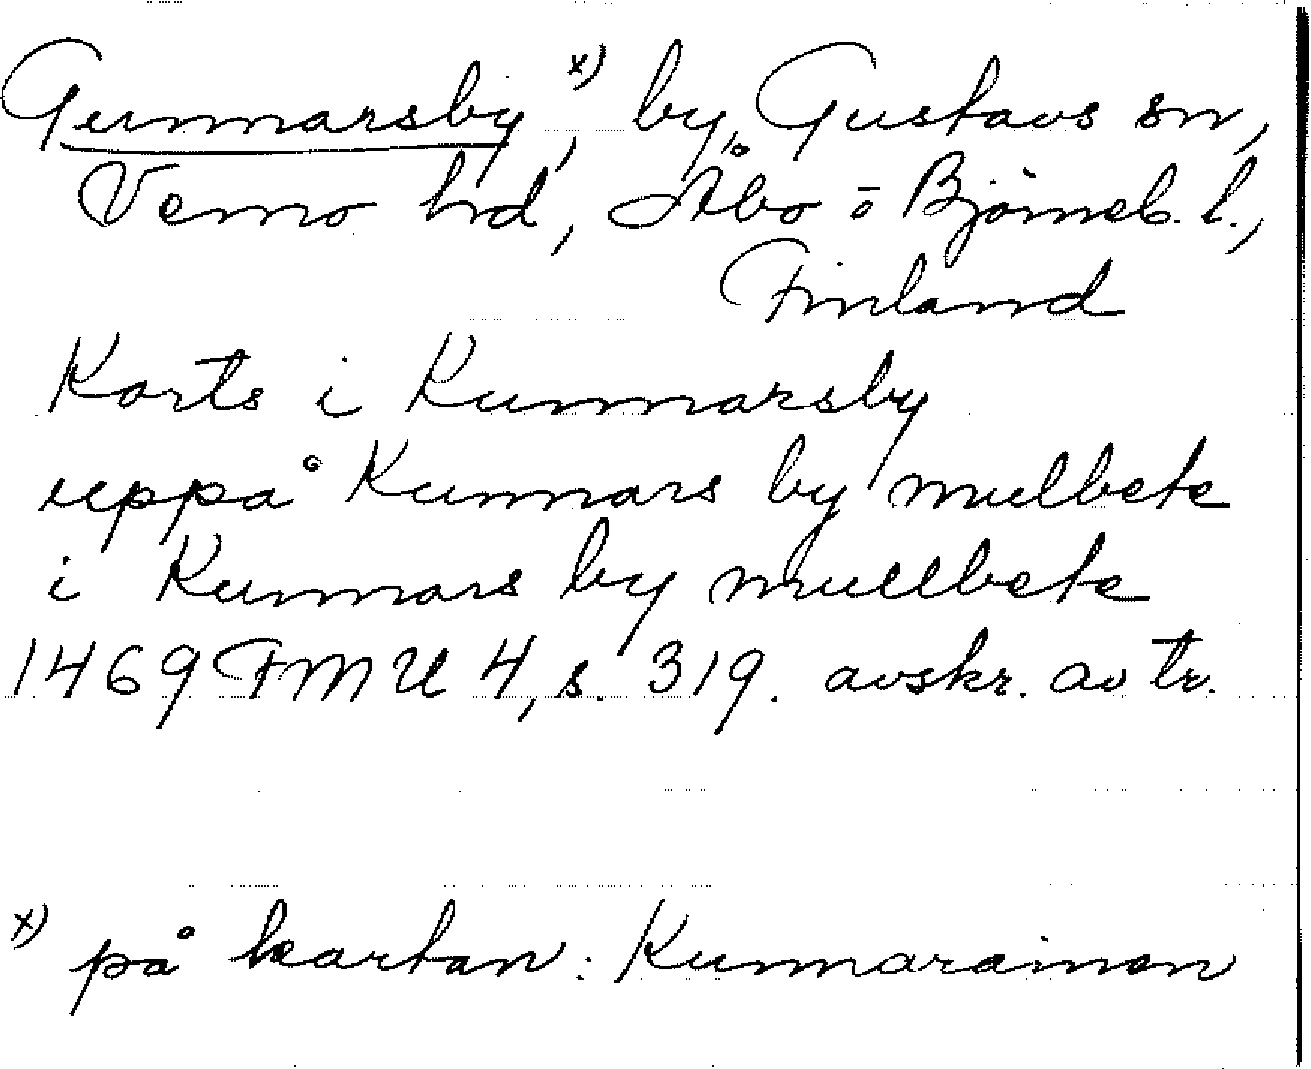 Gunnarsby x), by, Gustavs sn,
Vemo hd, Åbo o Björneb. l.,
Finland
Korts i Kunnarsby
uppå Kunnars by mulbete
i Kunnars by mullbete
1469 FMU 4, s. 319. avskr. av tr.
x) på kartan: Kunnarainen